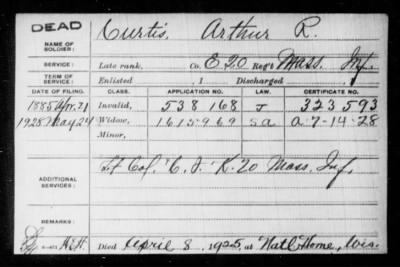 DEAD
NAME OF SOLDIER: Curtis, Arthur R.
SERVICE: Late rank, Co. E 20 Reg't Mass. Inf.
TERM OF SERVICE: Enlisted , 1 Discharged , 1
DATE OF FILING. CLASS. APPLICATION NO. LAW. CERTIFICATE NO.
1885 Apr. 21 Invalid, 538 168 J 323,593
1928 May 24 Widow, 1615969 S.a. a-7-14-28
Minor,
ADDITIONAL SERVICES: Lt Col, C. I. K-20 Mass. Inf.
REMARKS:
Died April 8, 1925, at Nat'l Home, Wis.